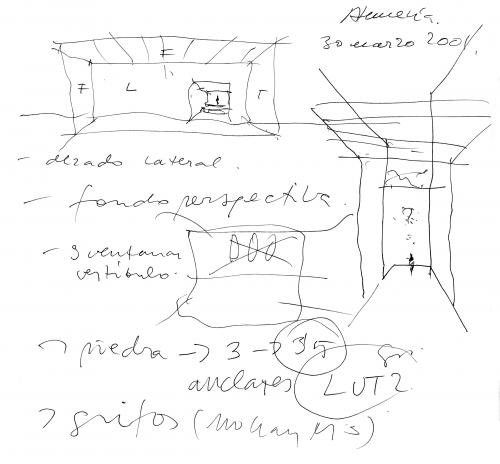 Almería.
30 marzo 2001
E
F L T
- alzado lateral.
- fondo perspectiva.
- 3 ventanas
vestíbulo.
→ piedra → 3 → 3,5
anclajes LUT2.
→ grifos (no hay